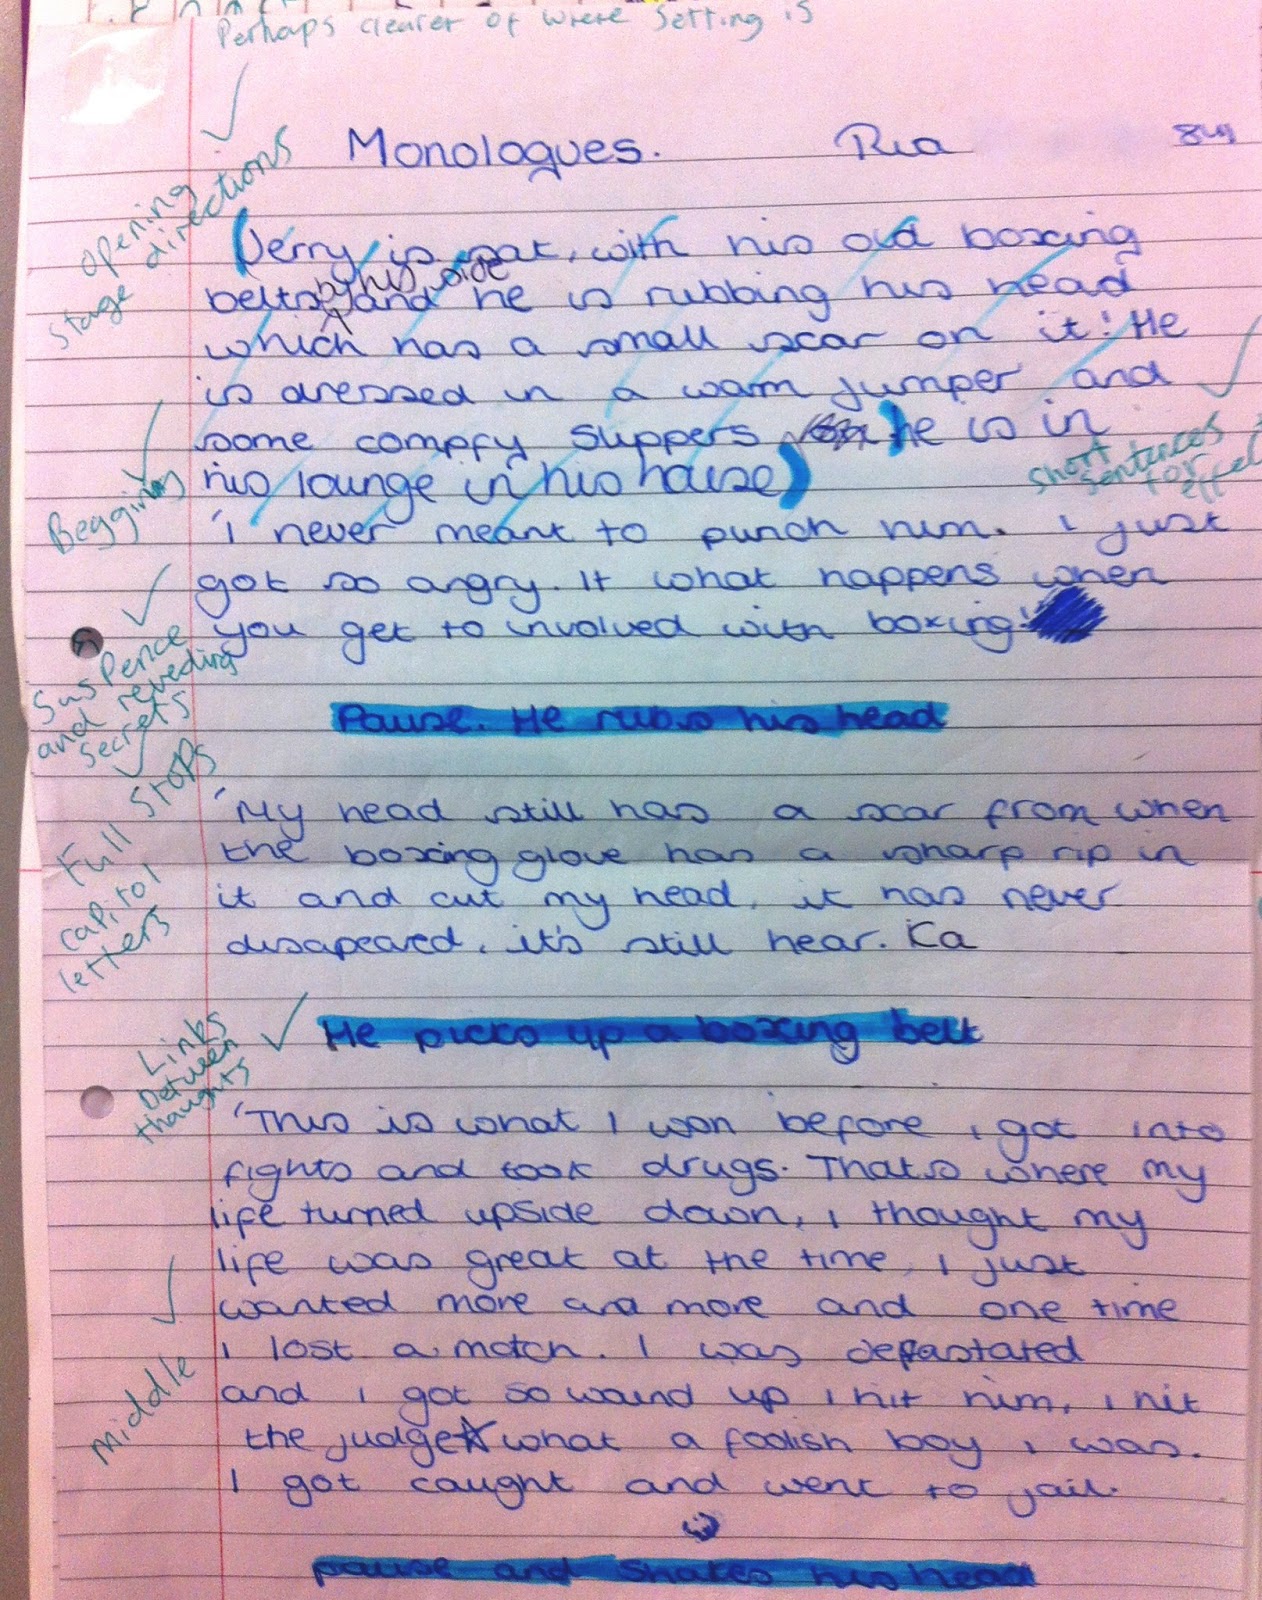 Perhaps clearer of where setting is
Monologues. Ria 8W
opening
stage directions
(Jerry is sat, with his old boxing
belts by his side and he is rubbing his head
which has a small scar on it! He
is dressed in a warm jumper and
some compfy slippers he is in
his lounge in his house)
short
sentences
for
effect
Beggining
'I never meant to punch him. I just
got so angry. It what happens when
you get to involved with boxing!
Suspence
and revealing
secrets
Pause. He rubs his head
Full stops
capitol
letters
'My head still has a scar from when
the boxing glove has a sharp rip in
it and cut my head, it has never
disapeared, it's still hear. Ka
Links
between
thoughts
He picks up a boxing belt
'This is what I won before i got into
fights and took drugs. Thats where my
life turned upside down, i thought my
life was great at the time, I just
wanted more and more and one time
i lost a match. I was defastated
and i got so wound up i hit him, i hit
the judge what a foolish boy i was.
I got caught and went to jail.
middle
pause and shakes his head